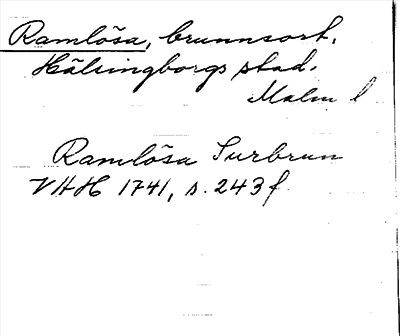 Ramlösa, brunnsort,
Hälsingborgs stad.
Malm l
Ramlösa Surbrun
VHH 1741, s. 243 f.